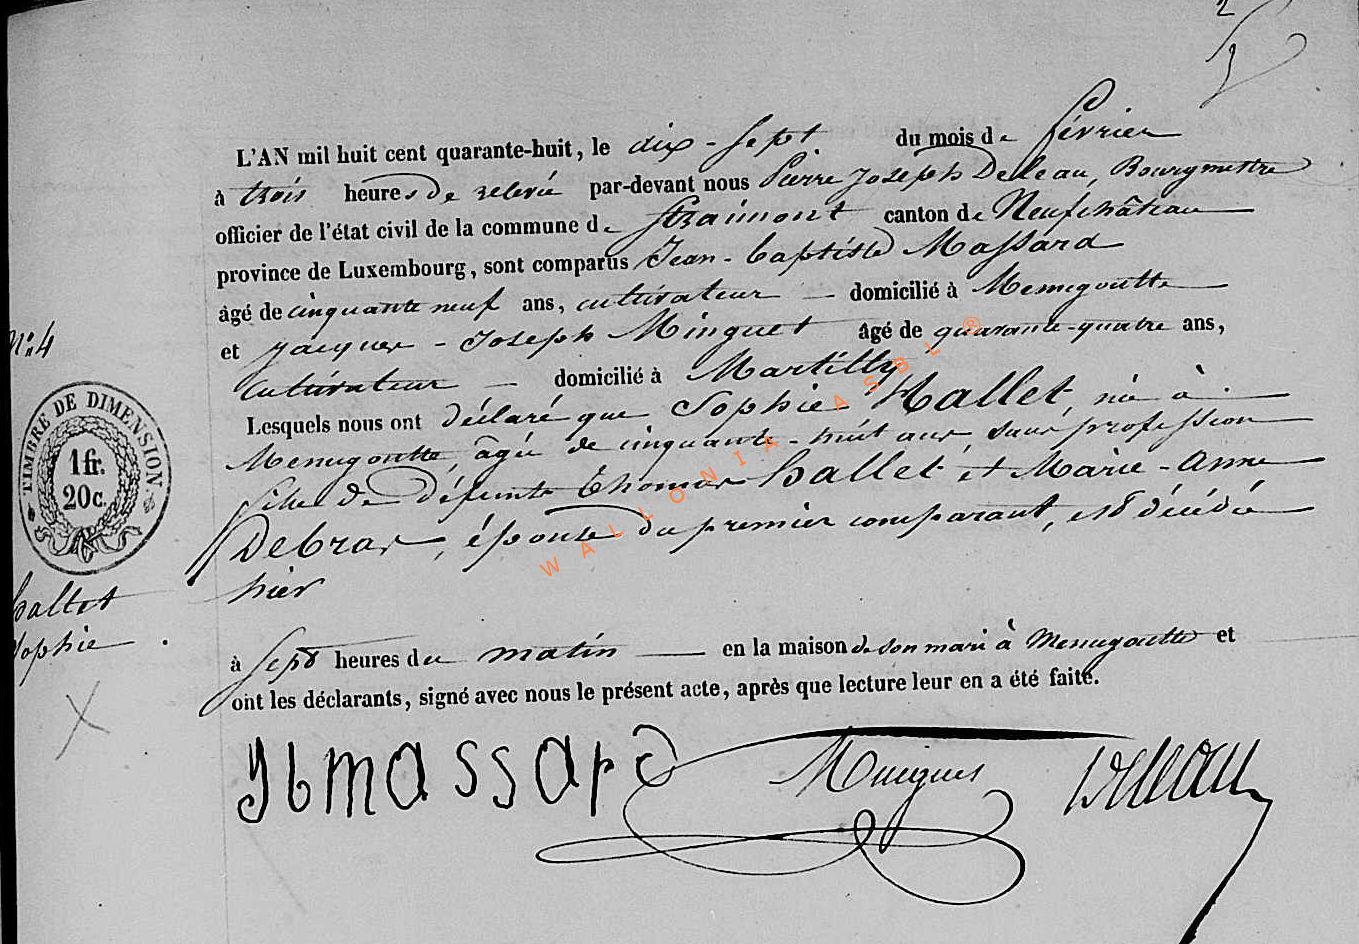 2
L'AN mil huit cent quarante-huit, le dix-sept du mois de février
à trois heures de relevée par-devant nous Pierre Joseph Deleau, Bourgmestre
officier de l'état civil de la commune de Straimont canton de Neufchâteau
province de Luxembourg, sont comparus Jean-baptiste Massard
âgé de cinquante neuf ans, cultivateur domicilié à Menugoutte
et Jacques-Joseph Minguet âgé de quarante-quatre ans,
Cultivateur domicilié à Martilly
Lesquels nous ont déclaré que Sophie Hallet, née à
Menugoutte, âgée de cinquante-huit ans, sans profession
fille de défunts Thomas hallet et Marie-Anne
Debras, épouse du premier comparant, est décédée
hier
à sept heures du matin en la maison de son mari à Menugoutte et
ont les déclarants, signé avec nous le présent acte, après que lecture leur en a été faite.
N° 4
TIMBRE DE DIMENSION
1 fr.
20 c.
hallet
Sophie
Jb massard Minguet Deleau
WALLONIA ASBL ®